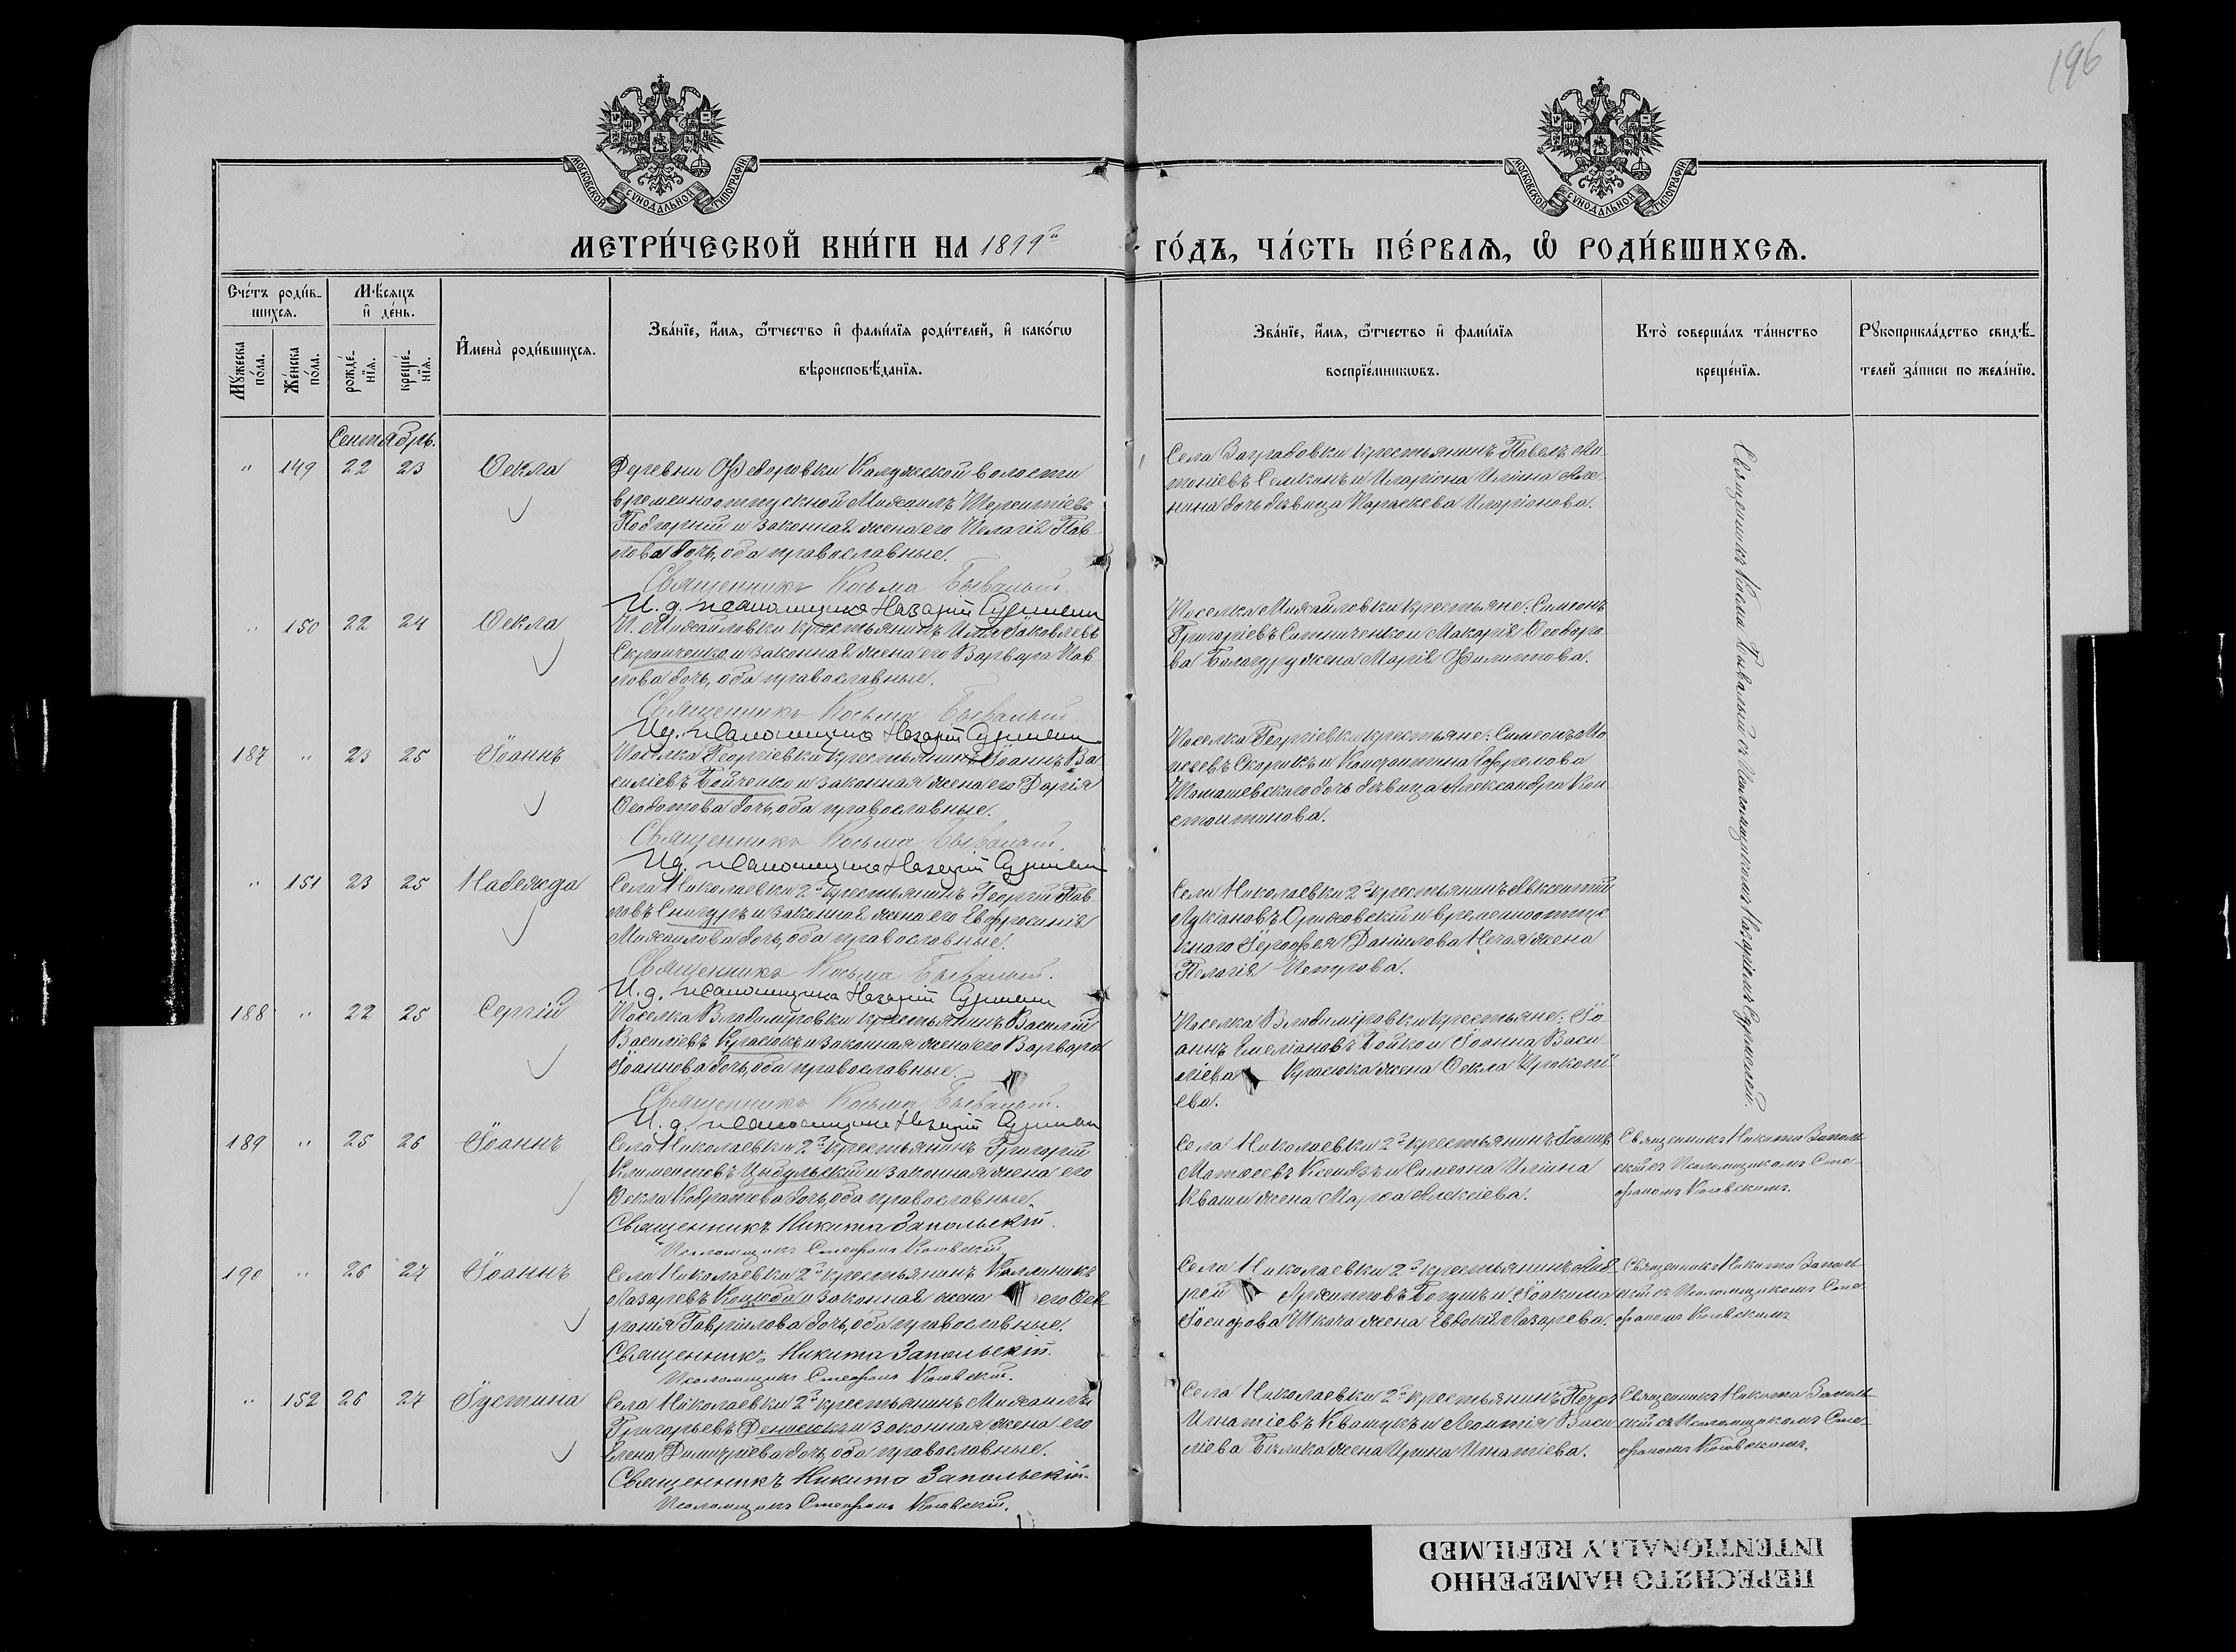 196
МОСКОВСКОЙ СѴНОДАЛЬНОЙ ТИПОГРАФІИ
МОСКОВСКОЙ СѴНОДАЛЬНОЙ ТИПОГРАФІИ
МЕТРИ́ЧЕСКОЙ КНИ́ГИ НА 1899й ГО́ДЪ, ЧА́СТЬ ПЕ́РВАѦ, Ѡ РОДИ́ВШИХСѦ.
Сче́тъ роди́в-
шихсѧ.
Мꙋ́жеска по́ла.
Же́нска по́ла.
Мѣ́сѧцъ и де́нь.
рожде́-нїѧ.
креще́-нїѧ.
И҆мена̀ роди́вшихсѧ.
Зва́нїе, и҆́мѧ, ѻ҆́тчество и҆ фами́лїѧ роди́телей, и҆ како́гѡ
вѣроисповѣ́данїѧ.
Зва́нїе, и҆́мѧ, ѻ҆́тчество и҆ фами́лїѧ
воспрїе́мникѡвъ.
Кто̀ соверша́лъ та́инство
креще́нїѧ.
Рꙋкоприкла́дство свидѣ́-
телей за́писи по жела́нїю.
Сентябрь.
" 149 22 23 Ѳекла
Деревни Федоровки Калужской волости
временноотпускной Михаилъ Терентіевъ
Подгорний и законная жена его Пелагія Пав-
лова дочь, оба православные.
Священникъ Косьма Бывалый.
И. д. псаломщика Назарій
Села Заградовки крестьянинъ Павелъ Ан-
тоніевъ и Иларіона Иліина
дочь дѣвица Параскева Иларіонова.
Священникъ Косма Бывалый съ Псаломщикомъ Назаріемъ
" 150 22 24 Ѳекла
П. Михайловки крестьянинъ Илія Іаковлевъ
Скрипченко и законная жена его Варвара Пав-
лова дочь, оба православные.
Священникъ Косьма Бывалый
И.д. псаломщика Назарій
Поселка Михайловки крестьяне: Симеонъ
Григоріевъ Ситниченко и Макарія Ѳеодоро-
ва Балагуру жена Марія Филиппова.
187 " 23 25 Іоаннъ
Поселка Георгіевки крестьянинъ Іоаннъ Ва-
силіевъ Бойченко и законная жена его Дарія
Ѳеодотова дочь, оба православные.
Священникъ Косьма Бывалый.
И.д. псаломщика Назарій
Поселка Георгіевки крестьяне: Симеонъ Мо-
исеевъ Скорикъ и Константина Ефремова
Томашевскаго дочь дѣвица Александра Кон-
стантинова.
" 151 23 25 Надежда
Села Николаевки 2й крестьянинъ Георгій Пав-
ловъ Снигуръ и законная жена его Евфросинія
Михаилова дочь, оба православные.
Священникъ Косьма Бывалый.
И. д. псаломщика Назарій
Села Николаевки 2й крестьянинъ Авксентій
Лукіановъ Ориховскій и временноотпус-
кнаго Іероѳея Даніилова Нечая жена
Пелагія Петрова.
188 " 22 25 Сергій
Поселка Владиміровки крестьянинъ Василій
Василіевъ Красюкъ и законная жена его Варвара
Іоаннова дочь, оба православные.
Священникъ Косьма Бывалый.
И. д. псаломщика Назарій
Поселка Владиміровки крестьяне: Іо-
аннъ Емеліановъ Бойко и Іоанна Васи-
ліева Красюка жена Ѳекла Прокопі-
ева.
189 " 25 26 Іоаннъ
Села Николаевки 2й крестьянинъ Григорій
Климентовъ Цыбульскій и законная жена его
Ѳекла Кодратова дочь, оба православные.
Священникъ Никита Запольскій.
Псаломщикъ Стефанъ
Села Николаевки 2й крестьянинъ Іоаннъ
Матѳеевъ Ксендзъ и Симеона Иліина
Кваши жена Марѳа Алексіева.
Священникъ Никита Заполь-
скій съ Псаломщикомъ Сте-
фаномъ
190 " 26 27 Іоаннъ
Села Николаевки 2й крестьянинъ Каллиникъ
Лазаревъ Коцюба и законная жена его
Гавріилова дочь, оба православные.
Священникъ Никита Запольскій.
Псаломщикъ Стефанъ
Села Николаевки 2й крестьянинъ Анд-
рей Архиповъ Богушъ и Іоакима
Іосифова Шкача жена Евдокія Лазарева.
Священникъ Никита Заполь-
скій съ Псаломщикомъ Сте-
фаномъ
" 152 26 27 Іустина
Села Николаевки 2й крестьянинъ Михаилъ
Григорьевъ Денисюкъ и законная жена его
Елена Димитріева дочь, оба православные.
Священникъ Никита Запольскій.
Псаломщикъ Стефанъ
Села Николаевки 2й крестьянинъ Петръ
Игнатіевъ Квашукъ и Леонтія Васи-
ліева Бѣлика жена Ирина Игнатіева.
Священникъ Никита Заполь-
скій съ Псаломщикомъ Сте-
фаномъ
ПЕРЕСНЯТО НАМЕРЕННО
INTENTIONALLY REFILMED